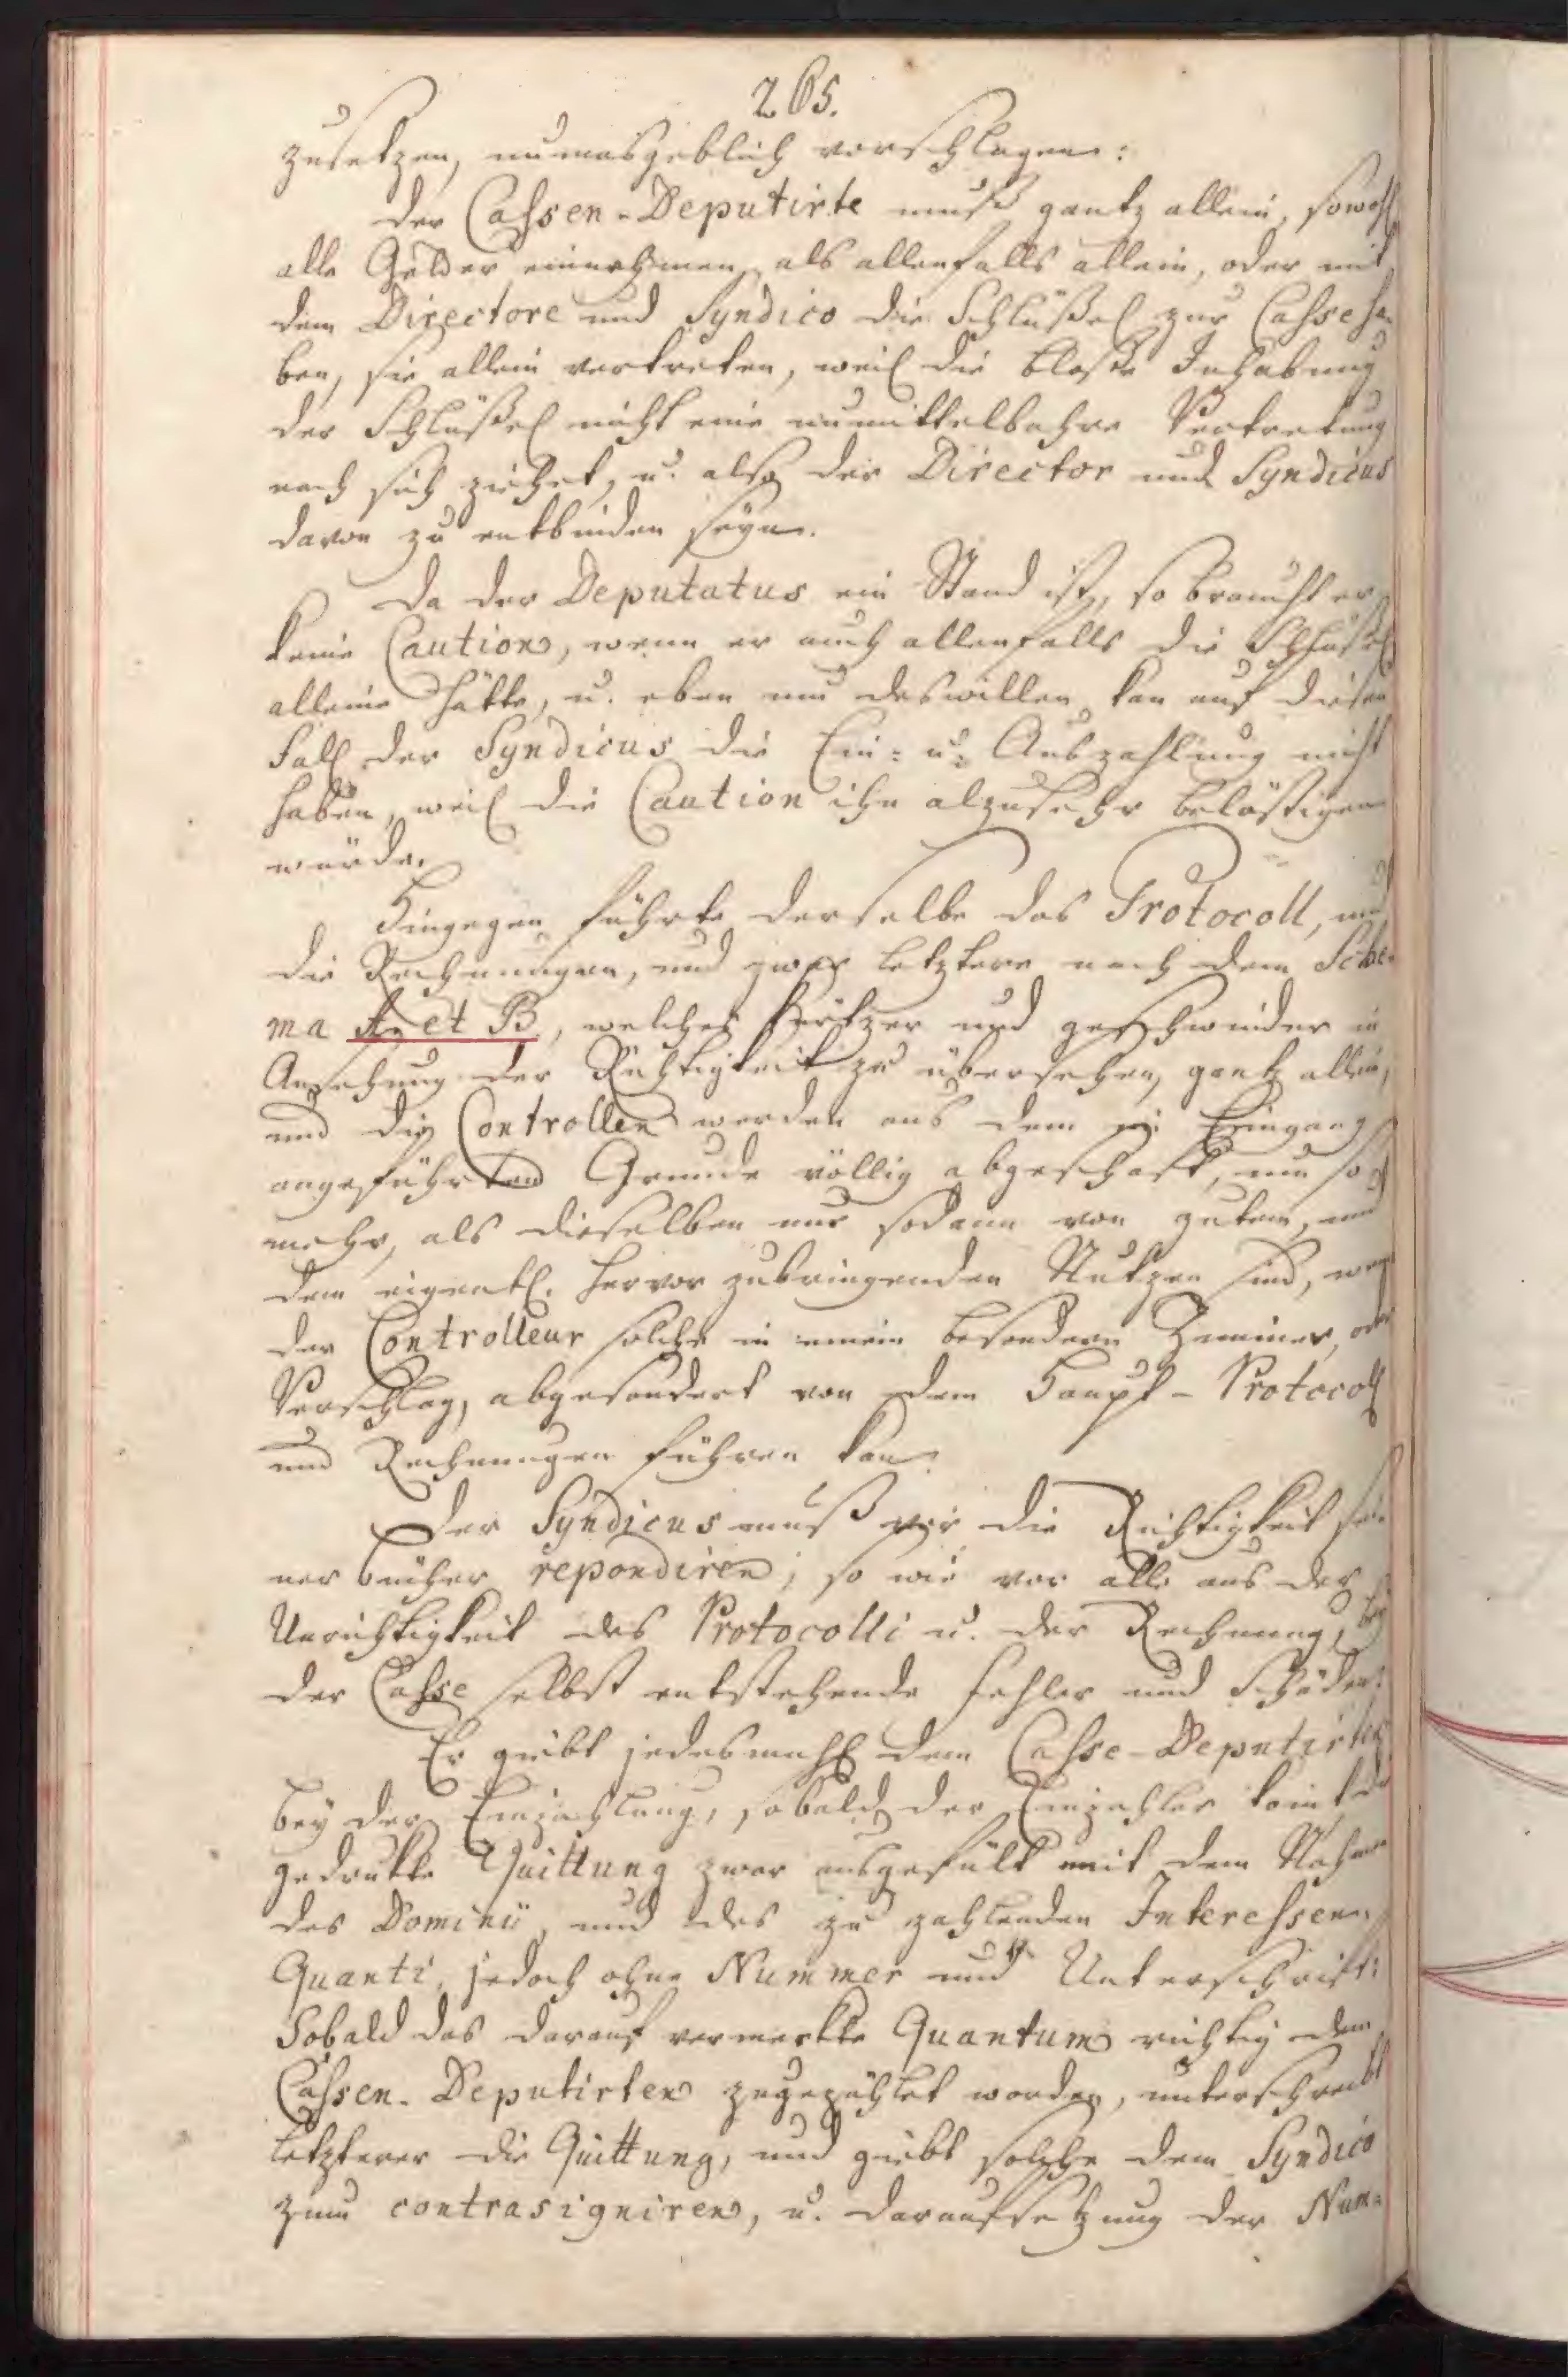 265.
zusetzen, unmasgeblich vorschlagen:
Der Cassen-Deputirte muß gantz allein, sowohl
alle Gelder einnehmen, als allenfalls allein, oder mit
dem Directore und Syndico die Schlüßel zur Casse ha-
ben, sie allein vertreten, weil die bloße Inhabung
der Schlüßel nicht eine unmittelbahre Vertretung
nach sich ziehet, u. also der Director und Syndicus
davon zu entbinden seyn.
Da der Deputatus ein Stand ist, so braucht er
keine Caution, wenn er auch allenfalls die Schlüßel
alleine hätte, u. eben um deswillen kan auf diesen
Fall der Syndicus die Ein- u. Auszahlung nicht
haben, weil die Caution ihn alzusehr belästigen
würde.
Hingegen führte derselbe das Protocoll, und
die Rechnungen, und zwar letztere nach dem Sche-
ma A. et B., welches kürtzer und geschwinder in
Ansehung der Richtigkeit zu übersehen, gantz allein,
und die Controllen werden aus dem im Eingang
angeführten Grunde völlig abgeschaft, um so
mehr, als dieselben nur sodann von gutem, und
dem eigentl. hervor zubringenden Nutzen sind, wenn
der Controlleur solche in einem besondern Zimmer, oder
Verschlag, abgesondert von dem Haupt-Protocoll
und Rechnungen führen kan.
Der Syndicus muß vor die Richtigkeit sei-
ner Bücher repondiren; so wie vor alle aus der
Unrichtigkeit des Protocolli u. der Rechnung, bey
der Casse selbst entstehende Fehler und Schäden.
Er giebt jedesmahl dem Casse-Deputirten
bey der Einzahlung, sobald der Einzahler komt die
gedrukte Quittung zwar ausgefült mit dem Nahmen
des Dominii, und des zu zahlenden Interessen-
Quanti, jedoch ohne Nummer und Unterschrift.
Sobald das darauf vermerkte Quantum richtig dem
Cassen-Deputirten zugezählet worden, unterschreibt
letzterer die Quittung, und giebt solche dem Syndico
zum contrasigniren, u. daraufsetzung der Num-